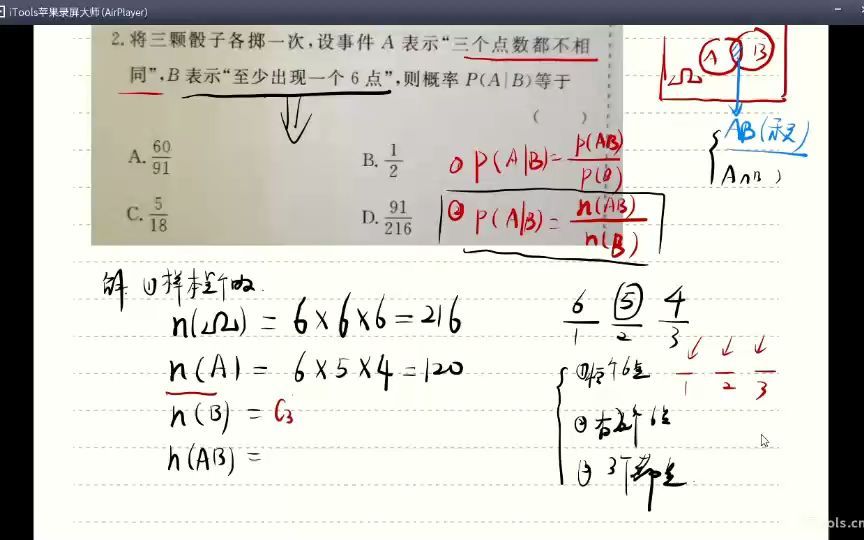 iTools苹果录屏大师(AirPlayer)
2.将三颗骰子各掷一次,设事件 A 表示“三个点数都不相
同”,B 表示“至少出现一个 6 点”,则概率 P(A|B)等于
( )
A. 60/91
B. 1/2
C. 5/18
D. 91/216
① P(A|B)= P(AB)/P(B)
② P(A|B)= n(AB)/n(B)
Ω A B
AB(积)
A∩B
解 (1)样本空间
n(Ω) = 6×6×6=216
n(A) = 6×5×4=120
n(B) = C3
n(AB) =
6 5 4
1 2 3
①有个6点
1 2 3
②有两个6点
③ 3个都是
ools.cn